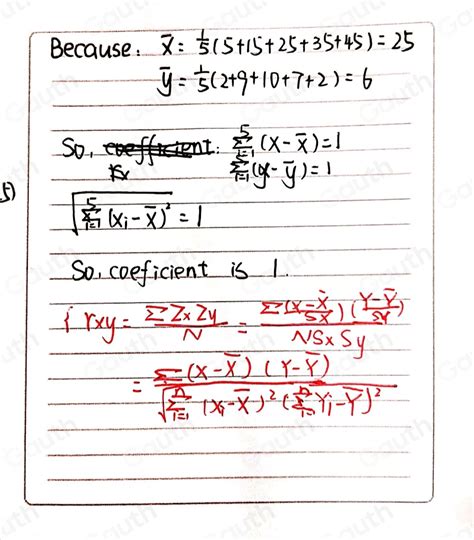 Because: x̄ = 1/5 (5+15+25+35+45) = 25
ȳ = 1/5 (2+9+10+7+2) = 6
So, coefficient: 5Σi=1 (x - x̄) = 1
5Σi=1 (y - ȳ) = 1
5)
√(5Σi=1 (xi - x̄)²) = 1
So, coeficient is 1.
{ rxy = ΣZxZy / N = Σ((x - x̄)/Sx)((Y - Ȳ)/Sy) / NSxSy
= Σ(x - X̄)(Y - Ȳ) / √(nΣi=1 (xi - X̄)² (nΣi=1 Yi - Ȳ)²)